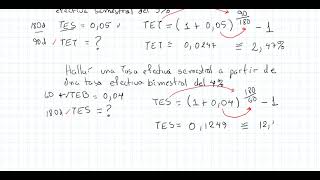 efectiva semestral del 5%
180d TES = 0,05 TET = (1 + 0,05)^(90/180) - 1
90d TET = ? TET = 0,0247 ≅ 2,47%
Hallar una Tasa efectiva semestral a partir de
una tasa efectiva bimestral del 4%
60 TEB = 0,04 TES = (1 + 0,04)^(180/60) - 1
180d TES = ?
TES = 0,1249 ≅ 12,